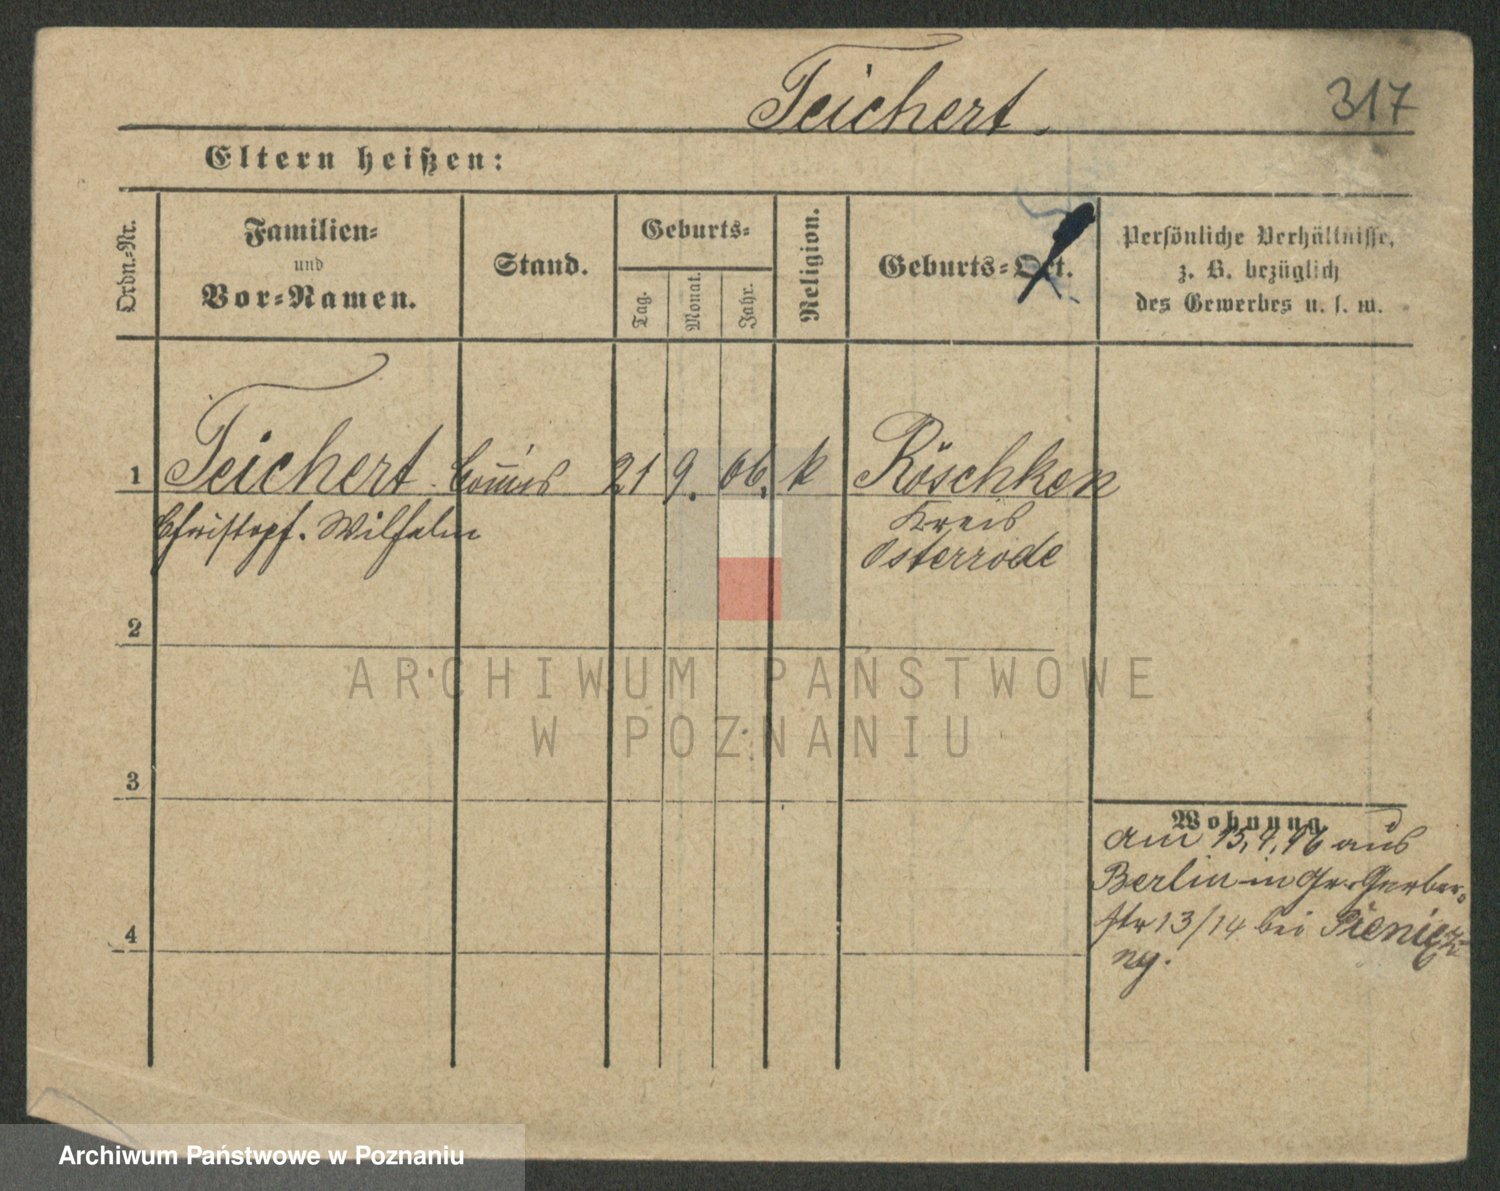 Teichert.
317
Eltern heißen:
Ordn.-Nr.
Familien-
und
Vor-Namen.
Stand.
Geburts-
Tag.
Monat.
Jahr.
Religion.
Geburts-Ort.
Persönliche Verhältnisse,
z. B. bezüglich
des Gewerbes u. s. w.
1 Teichert Commis 21 9. 06. k Röschken
Christoph. Wilhelm Kreis
Osterrode
2
ARCHIWUM PAŃSTWOWE
W POZNANIU
3
Wohnung
am 15, 4, 96 aus
Berlin in Gr. Gerber-
str 13/14 bei Pieniez-
ny.
4
Archiwum Państwowe w Poznaniu